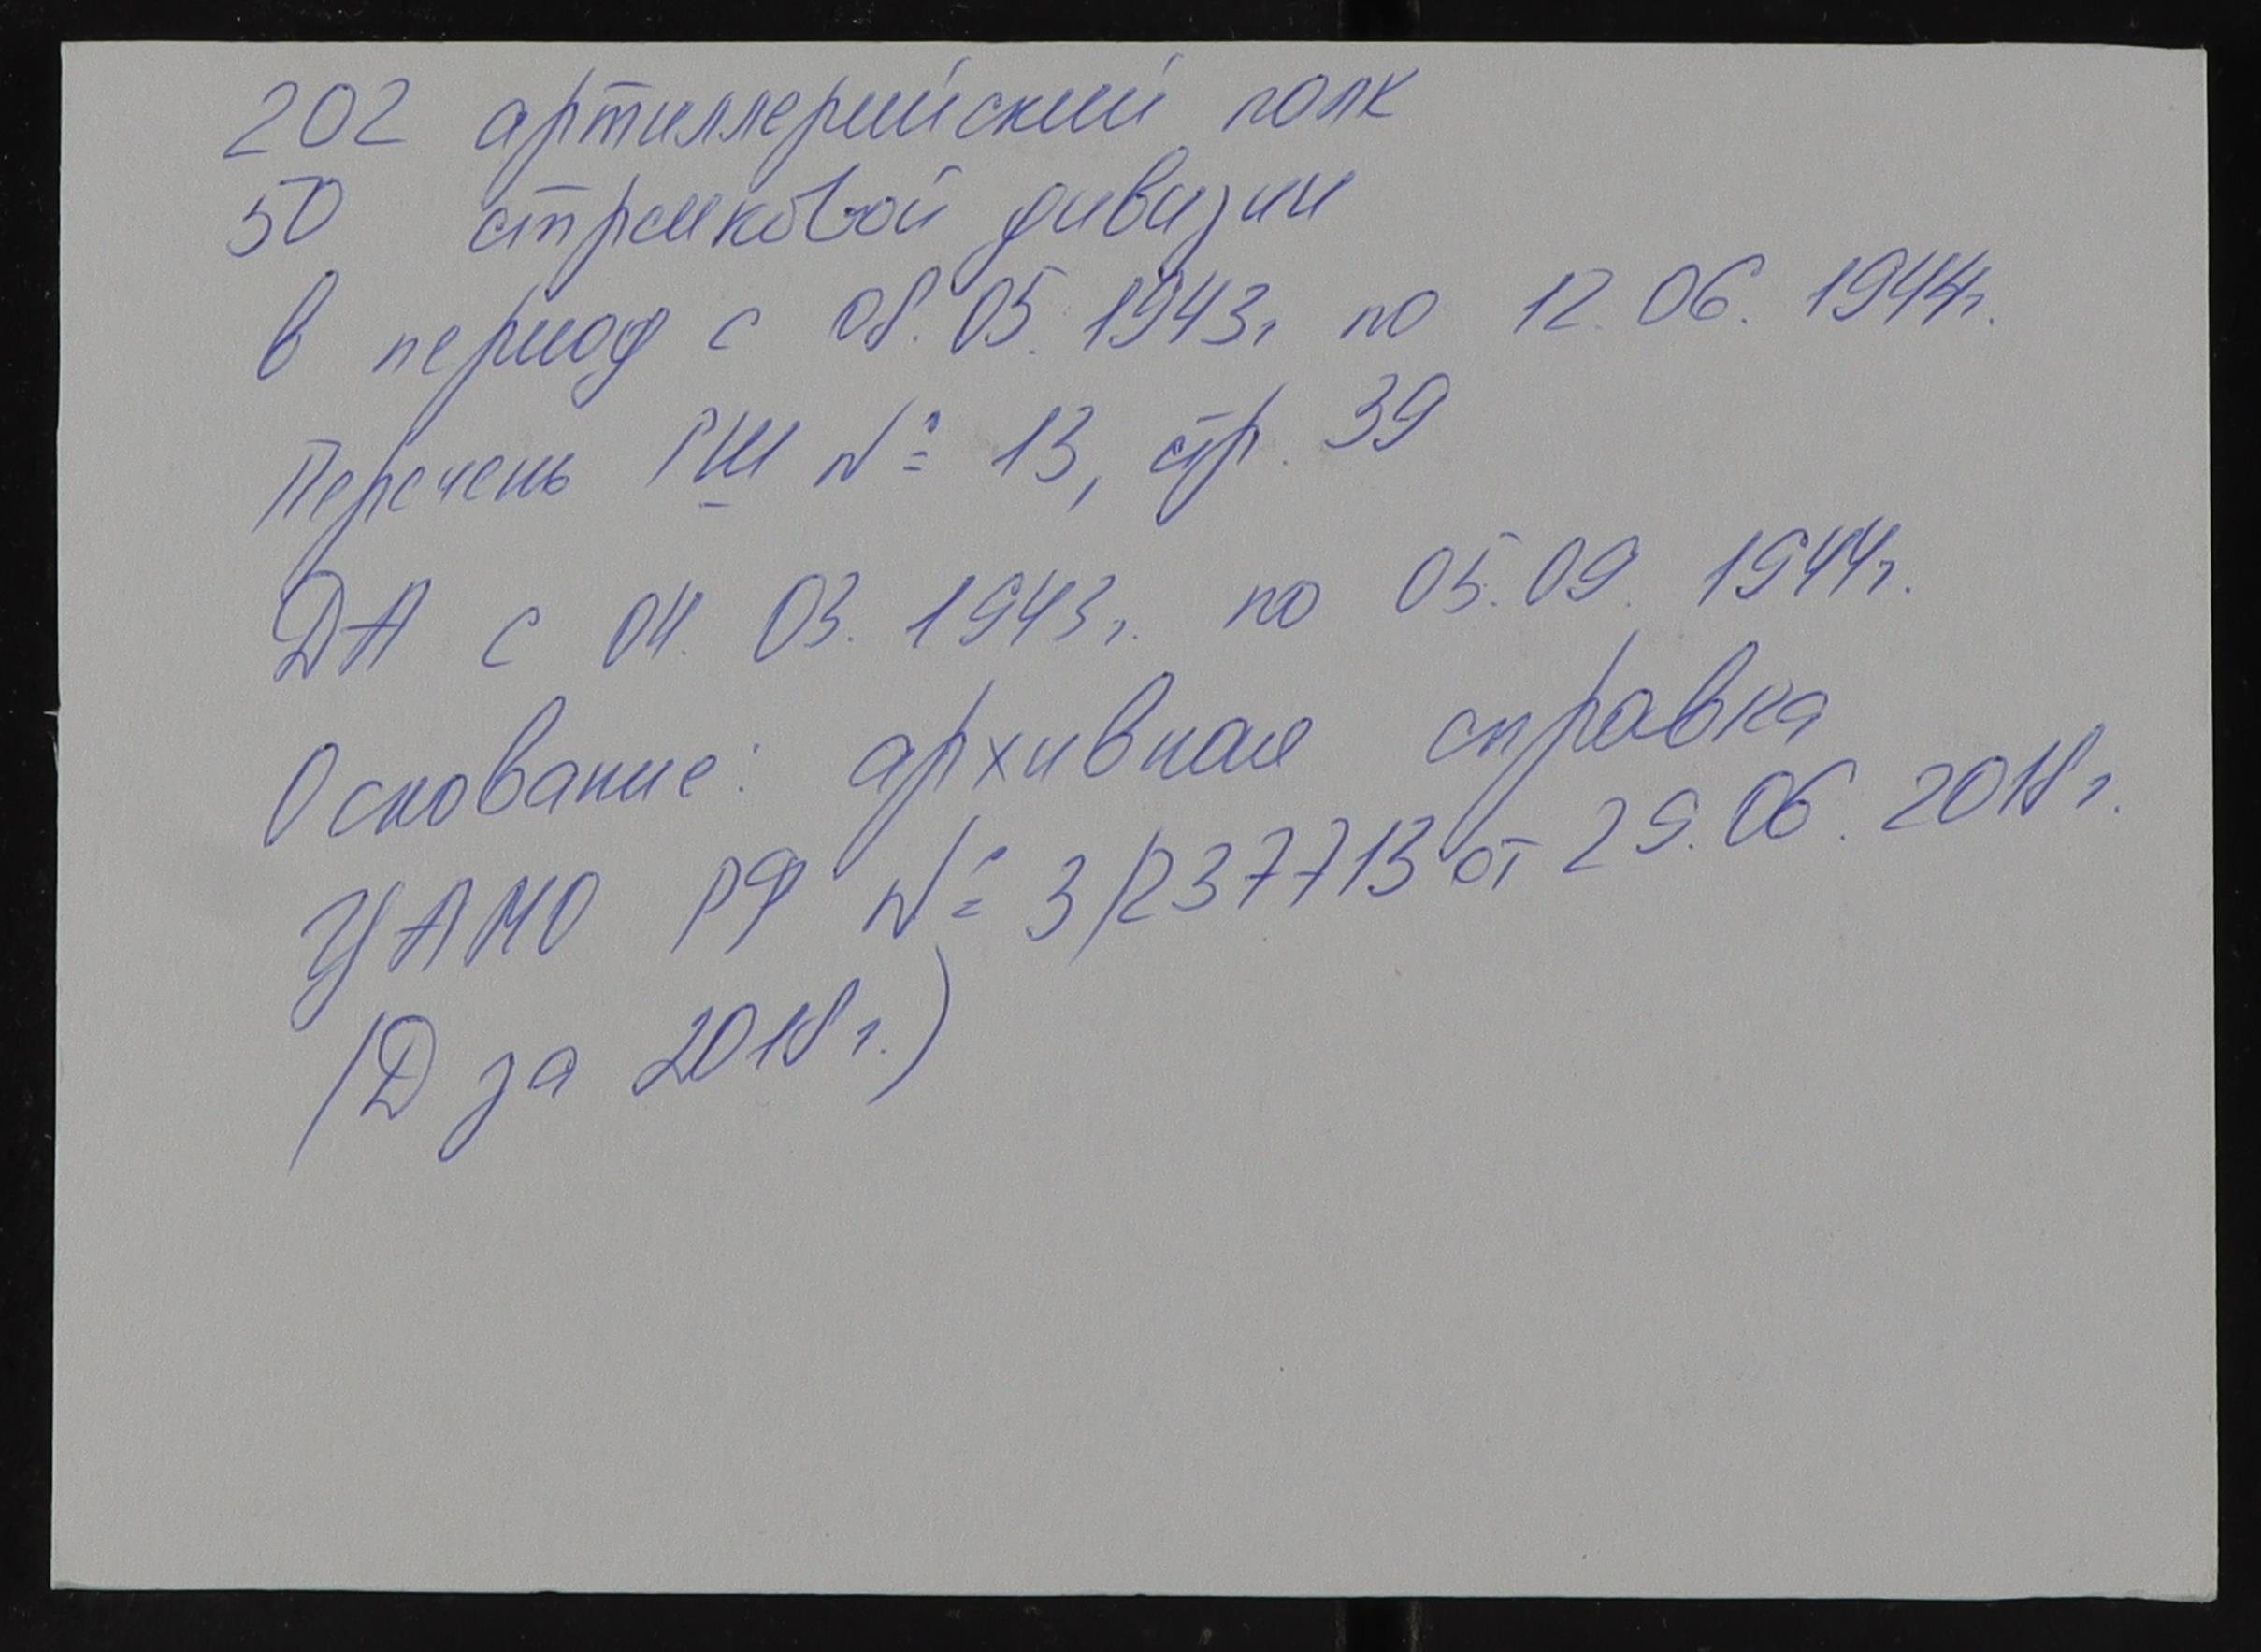 202 артиллерийский полк
50 стрелковой дивизии
в период с 08.05.1943г по 12.06.1944г.
Перечень ГШ № 13, стр. 39
ДА с 04.03.1943г. по 05.09.1944г.
Основание: архивная справка
ЦАМО РФ № 3/237713 от 29.06.2018г.
(Д за 2018г.)